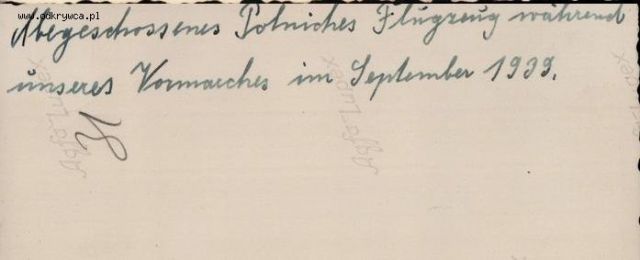 www.odkrywca.pl
Abgeschossenes Polniches Flugzeug während
unseres Vormarches im September 1939.
Agfa-Lupex
Agfa-Lupex